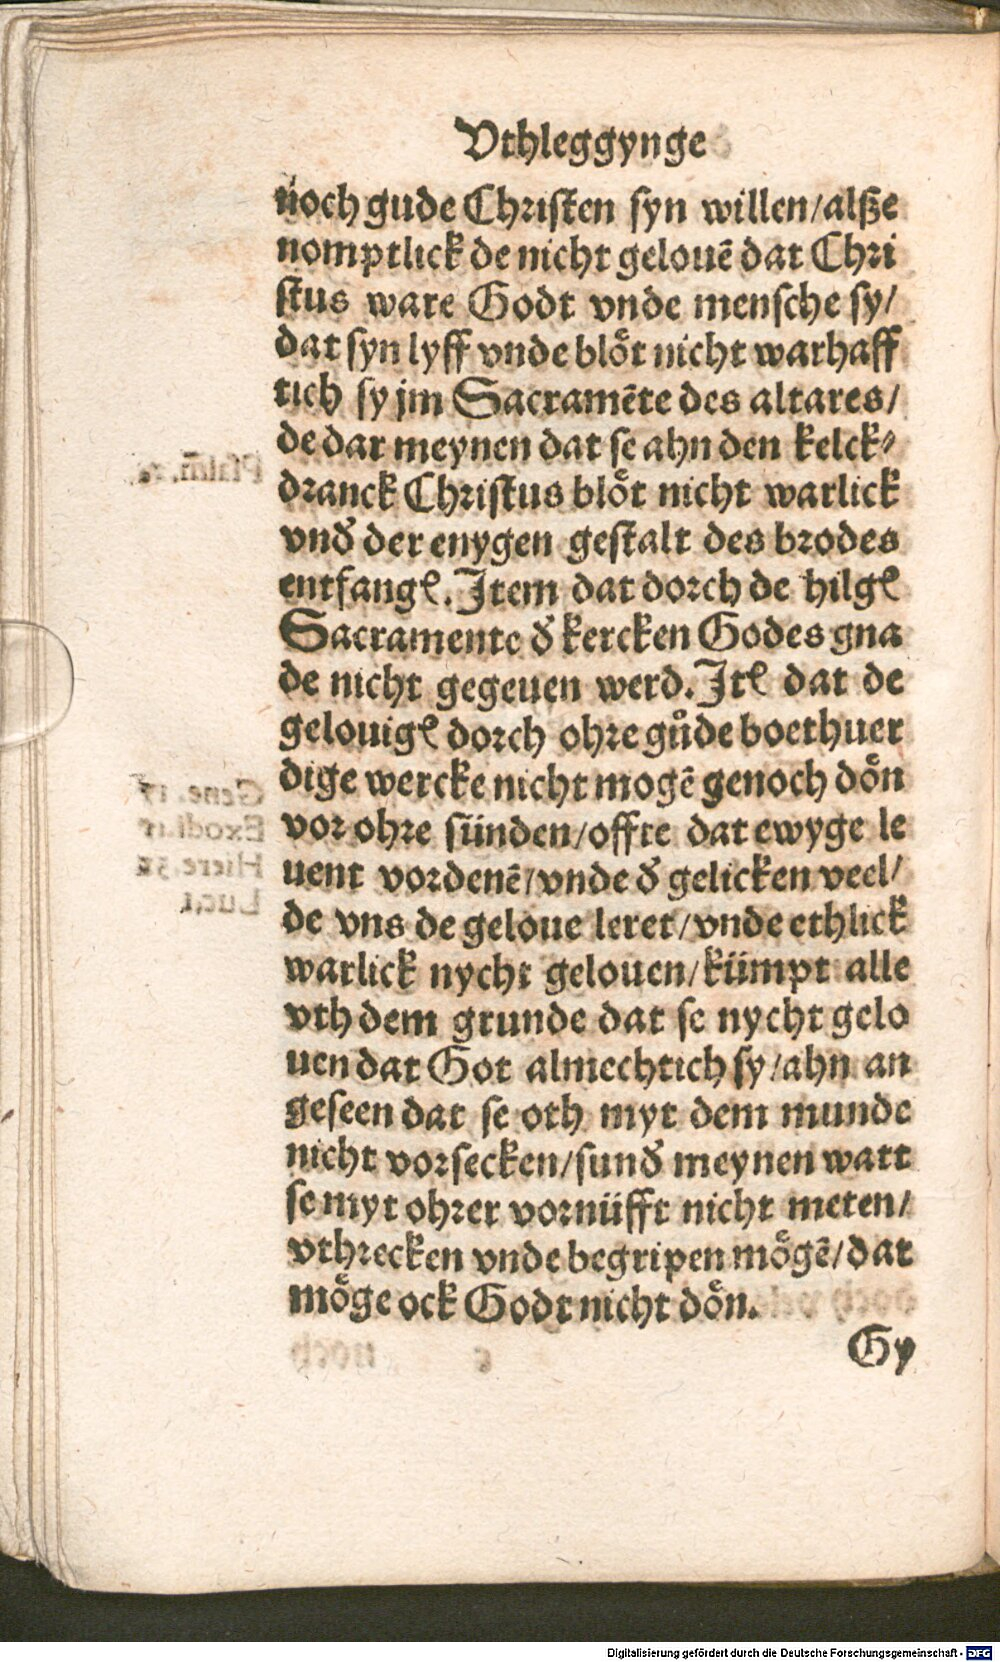 Vthleggynge
noch gude Chꝛiſten ſyn willen/alße
nomptlick de nicht gelouē dat Chꝛi
ſtus ware Godt vnde menſche ſy/
dat ſyn lyff vnde bloͤt nicht warhaff
tich ſy jm Sacramēte des altares/
de dar meynen dat ſe ahn den kelck⸗
dꝛanck Chꝛiſtus bloͤt nicht warlick
vnd̄ der enygen geſtalt des bꝛodes
entfangē. Item dat doꝛch de hilgē
Sacramente d̄ kercken Godes gna
de nicht gegeuen werd. Itē dat de
gelouigē doꝛch ohꝛe guͦde boethuer
dige wercke nicht mogē genoch doͤn
voꝛ ohꝛe ſuͤnden/offte dat ewyge le
uent voꝛdenē/vnde d̄ gelicken veel/
de vns de geloue leret/vnde ethlick
warlick nycht gelouen/kuͤmpt alle
vth dem grunde dat ſe nycht gelo
uen dat Got almechtich ſy/ahn an
geſeen dat ſe oth myt dem munde
nicht voꝛſecken/ſund̄ meynen watt
ſe myt ohꝛer voꝛnuͤfft nicht meten/
vthꝛecken vnde begripen moͤgē/dat
moͤge ock Godt nicht doͤn.
Gy
Digitalisierung gefördert durch die Deutsche Forschungsgemeinschaft - DFG